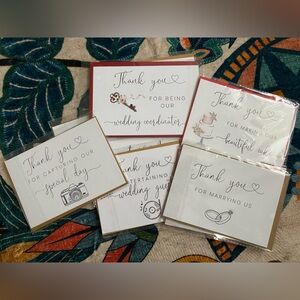 Thank you
FOR BEING
OUR
wedding coordinator
Thank you
FOR MAKING OUR
beautiful
Thank you
FOR CAPTURING OUR
special day
Thank you
TERTAINING
wedding
Thank you
FOR MARRYING US